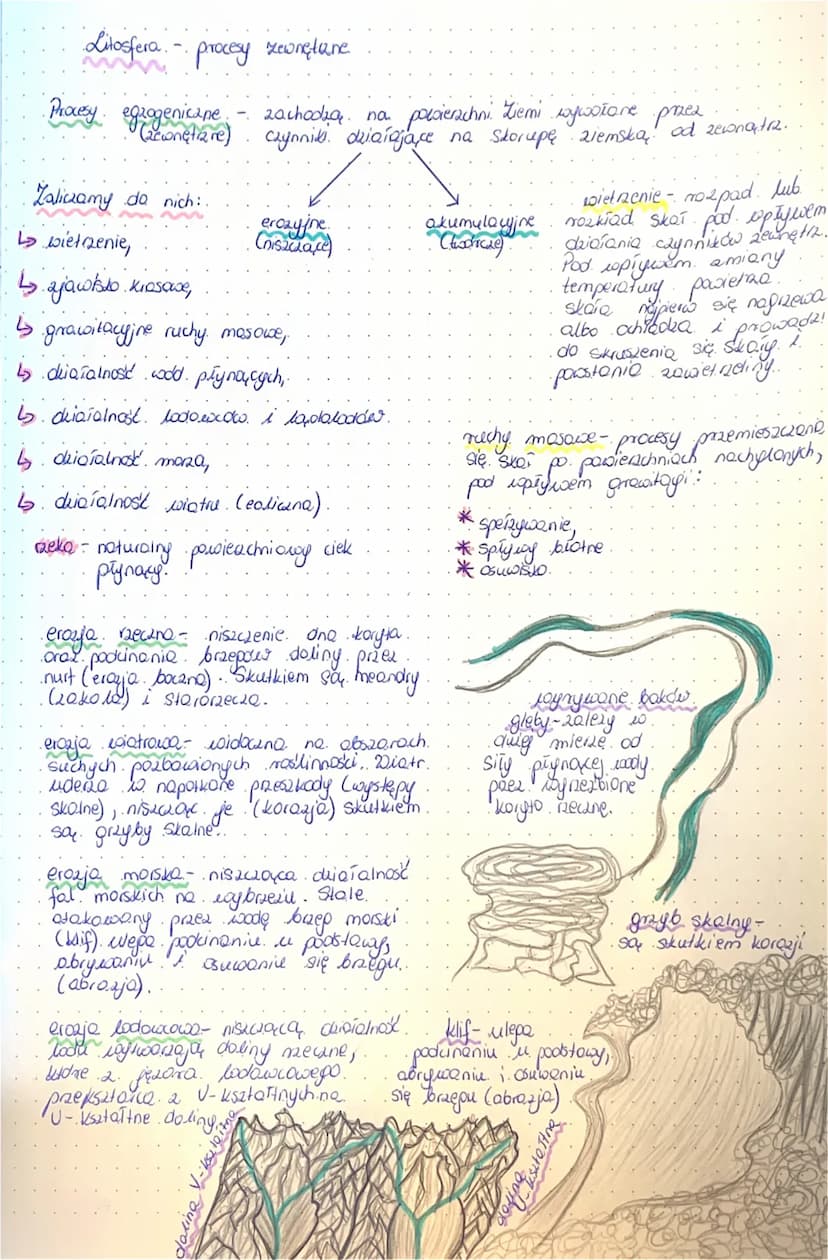 Litosfera - procesy zewnętrzne
Procesy egzogeniczne - zachodzą na powierzchni Ziemi wywołane przez
(zewnętrzne) czynniki działające na skorupę ziemską od zewnątrz.
erozyjne
(niszczące)
akumulacyjne
(twórcze)
Zaliczamy do nich:
↳ wietrzenie,
↳ zjawisko krasowe,
↳ grawitacyjne ruchy masowe,
↳ działalność wód płynących,
↳ działalność lodowców i lądolodów.
↳ działalność morza,
↳ działalność wiatru (eoliczna)
rzeka - naturalny powierzchniowy ciek
płynący.
wietrzenie - rozpad lub
rozkład skał pod wpływem
działania czynników zewnętrz.
Pod wpływem zmiany
temperatury powietrza
skała najpierw się nagrzewa
albo ochładza i prowadzi
do skruszenia się skały i
powstania zawietrzeliny.
ruchy masowe - procesy przemieszczania
się skał po powierzchniach nachylonych,
pod wpływem grawitacji:
* spełzywanie,
* spływy błotne
* osuwisko
erozja rzeczna - niszczenie dna koryta
oraz podcinania brzegów doliny przez
nurt (erozja boczna). Skutkiem są meandry
(zakola) i starorzecza.
erozja wiatrowa - widoczna na obszarach
suchych pozbawionych roślinności. Wiatr
uderza w napotkane przeszkody (występy
skalne), niszcząc je (korazja) skutkiem
są grzyby skalne.
erozja morska - niszcząca działalność
fal morskich na wybrzeżu. Stale
atakowany przez wodę brzeg morski
(klif) ulega podcinaniu u podstawy,
obrywaniu i osuwanie się brzegu.
(abrazja).
erozja lodowcowa - niszczącą działalność
lodu wytwarzają doliny rzeczne,
które z jęzora lodowcowego
przekształca z V-kształtnych na
U-kształtne doliny.
wyrywane boków
gleby - zależy w
dużej mierze od
siły płynącej wody
przez wyrzeźbione
koryto rzeczne.
grzyb skalny -
są skutkiem korazji
klif - ulega
podcinaniu u podstawy,
obrywaniu i osuwaniu
się brzegu (abrazja)
dolina V-kształtna
dolina U-kształtna